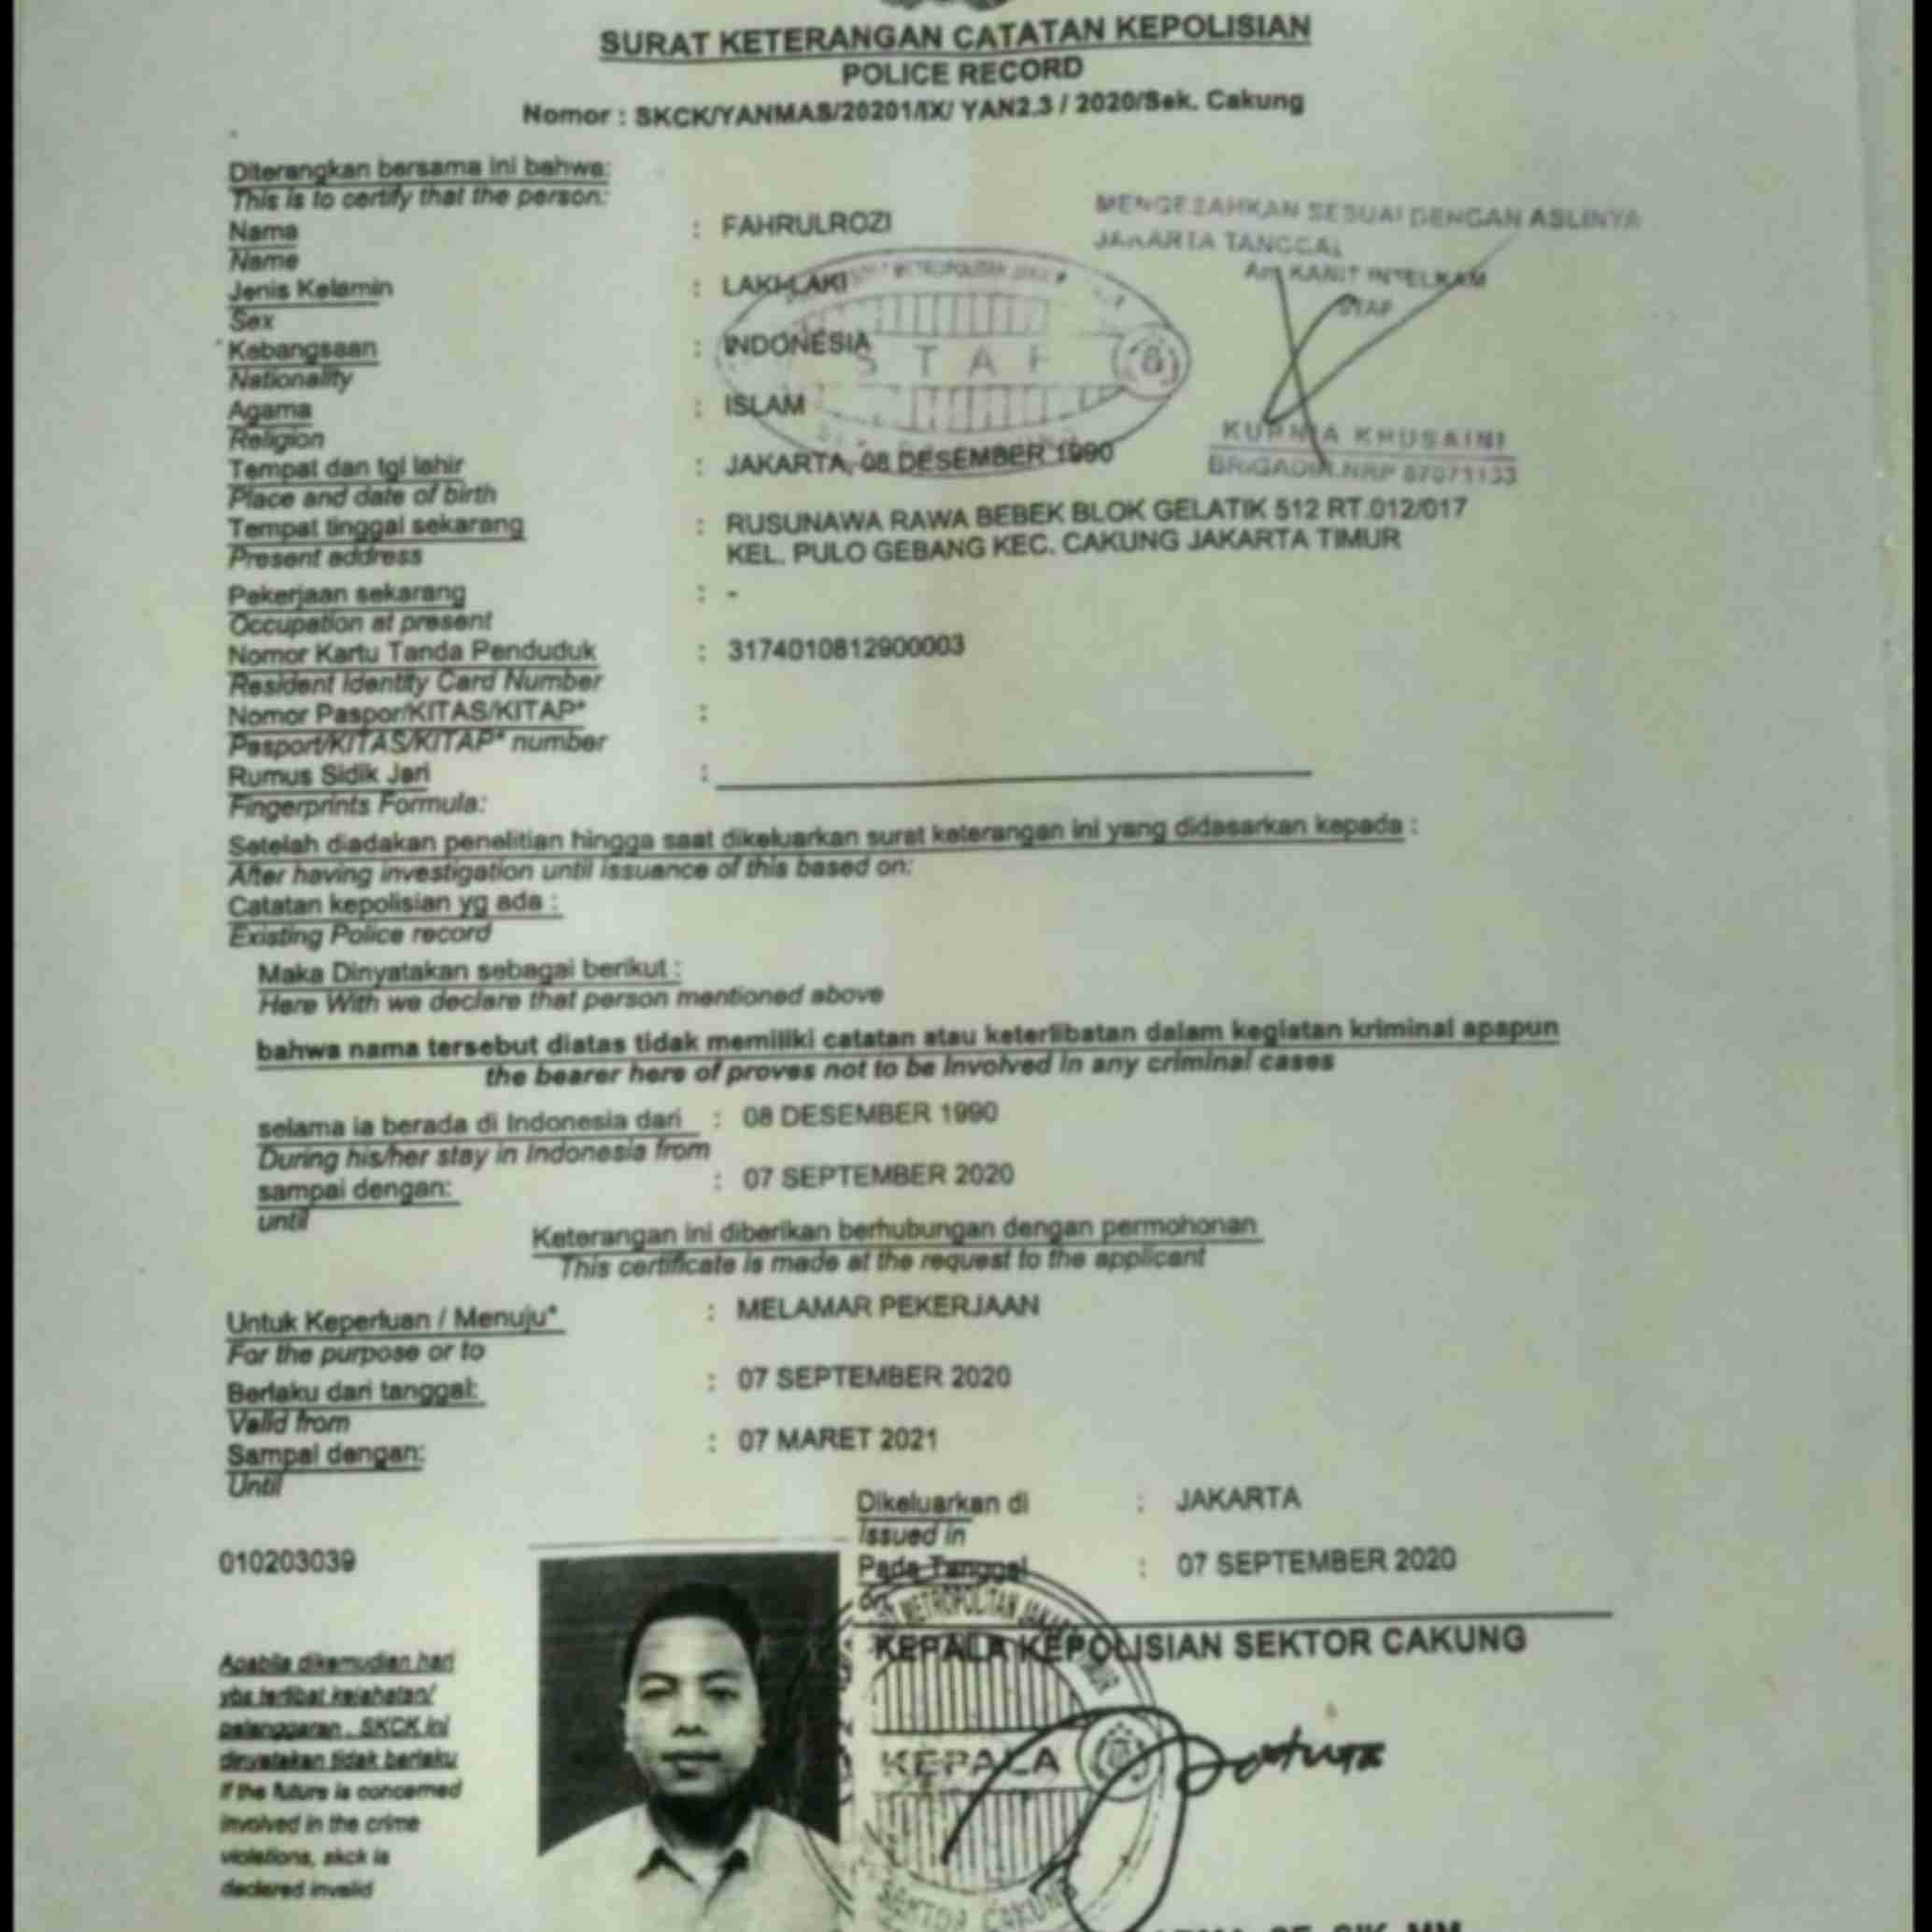 SURAT KETERANGAN CATATAN KEPOLISIAN
POLICE RECORD
Nomor : SKCK/YANMAS/20201/IX/ YAN2.3 / 2020/Sek. Cakung
Diterangkan bersama ini bahwa:
This is to certify that the person:
MENGESAHKAN SESUAI DENGAN ASLINYA
JAKARTA TANGGAL
An KANIT INTELKAM
STAF
KURNIA KHUSAINI
BRIGADIR NRP 87071133
Nama : FAHRULROZI
Name
Jenis Kelamin : LAKI-LAKI
Sex
Kebangsaan : INDONESIA
Nationality
STAF
Agama : ISLAM
Religion
Tempat dan tgl lahir : JAKARTA, 08 DESEMBER 1990
Place and date of birth
Tempat tinggal sekarang : RUSUNAWA RAWA BEBEK BLOK GELATIK 512 RT.012/017
Present address KEL. PULO GEBANG KEC. CAKUNG JAKARTA TIMUR
Pekerjaan sekarang : -
Occupation at present
Nomor Kartu Tanda Penduduk : 3174010812900003
Resident Identity Card Number
Nomor Paspor/KITAS/KITAP* :
Pasport/KITAS/KITAP* number
Rumus Sidik Jari :
Fingerprints Formula:
Setelah diadakan penelitian hingga saat dikeluarkan surat keterangan ini yang didasarkan kepada :
After having investigation until issuance of this based on:
Catatan kepolisian yg ada :
Existing Police record
Maka Dinyatakan sebagai berikut :
Here With we declare that person mentioned above
bahwa nama tersebut diatas tidak memiliki catatan atau keterlibatan dalam kegiatan kriminal apapun
the bearer here of proves not to be Involved in any criminal cases
selama ia berada di Indonesia dari : 08 DESEMBER 1990
During his/her stay in Indonesia from
sampai dengan: : 07 SEPTEMBER 2020
until
Keterangan ini diberikan berhubungan dengan permohonan
This certificate is made at the request to the applicant
Untuk Keperluan / Menuju* : MELAMAR PEKERJAAN
For the purpose or to
Berlaku dari tanggal: : 07 SEPTEMBER 2020
Valid from
Sampai dengan: : 07 MARET 2021
Until
Dikeluarkan di : JAKARTA
Issued in
Pada Tanggal : 07 SEPTEMBER 2020
on
010203039
METROPOLITAN JAKARTA TIMUR
KEPALA KEPOLISIAN SEKTOR CAKUNG
KEPALA
SEKTOR CAKUNG
Apabila dikemudian hari
ybs terlibat kejahatan/
pelanggaran , SKCK ini
dinyatakan tidak berlaku
If the future is concerned
involved in the crime
violations, skck is
declared invalid
SE, SIK, MM